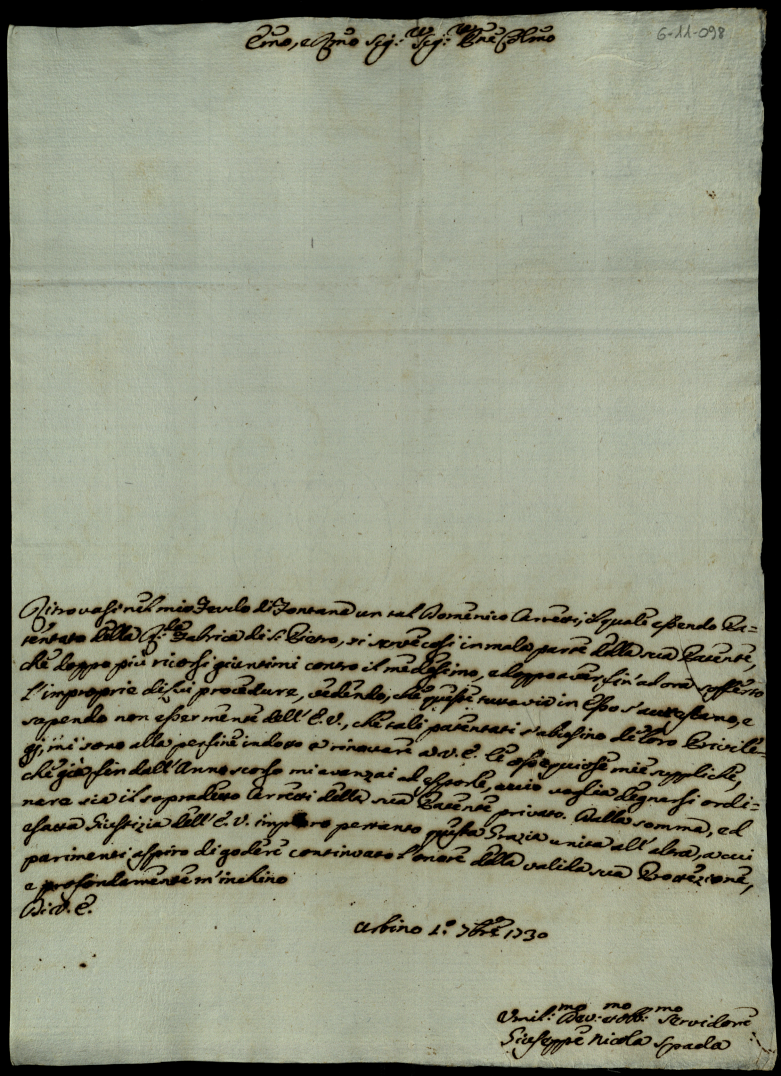 6-11-098
Emo, e Rmo Sig.re Sig.re Prne Colmo
Ritrovasi nel mio Feudo di Fontana un tal Domenico Cerretti, il quale essendo Pa=
tentato della Rda Fabrica di S. Pietro, si serve così in mala parte della sua Patente,
che doppo più ricorsi giuntimi contro il medesimo, e doppo aver fin' ad ora sofferto
l'improprie di lui procedure, vedendo, che queste tuttavia in Esso s'avanzano, e
sapendo non esser mente dell'E.V., che tali patentati s'abusino de loro Privile=
gj, mi sono alla perfine indotto a rinovare a V.E. le ossequiose mie suppliche,
che già fin dall'Anno scorso mi avanzai ad esporle, acciò voglia degnarsi ordi=
nare sia il sopradetto Cerretti della sua Patente privato. Dalla somma, ed
esatta Giustizia dell'E.V. imploro pertanto questa Grazia unita all'altra, a cui
parimenti aspiro di godere continuato l'onore della valida sua Protezione,
e profondamente m'inchino
Di V.E.
Urbino 1.o 7bre 1730
Umil.mo Dev.mo et Obb.mo Servidore
Giuseppe Nicola Spada